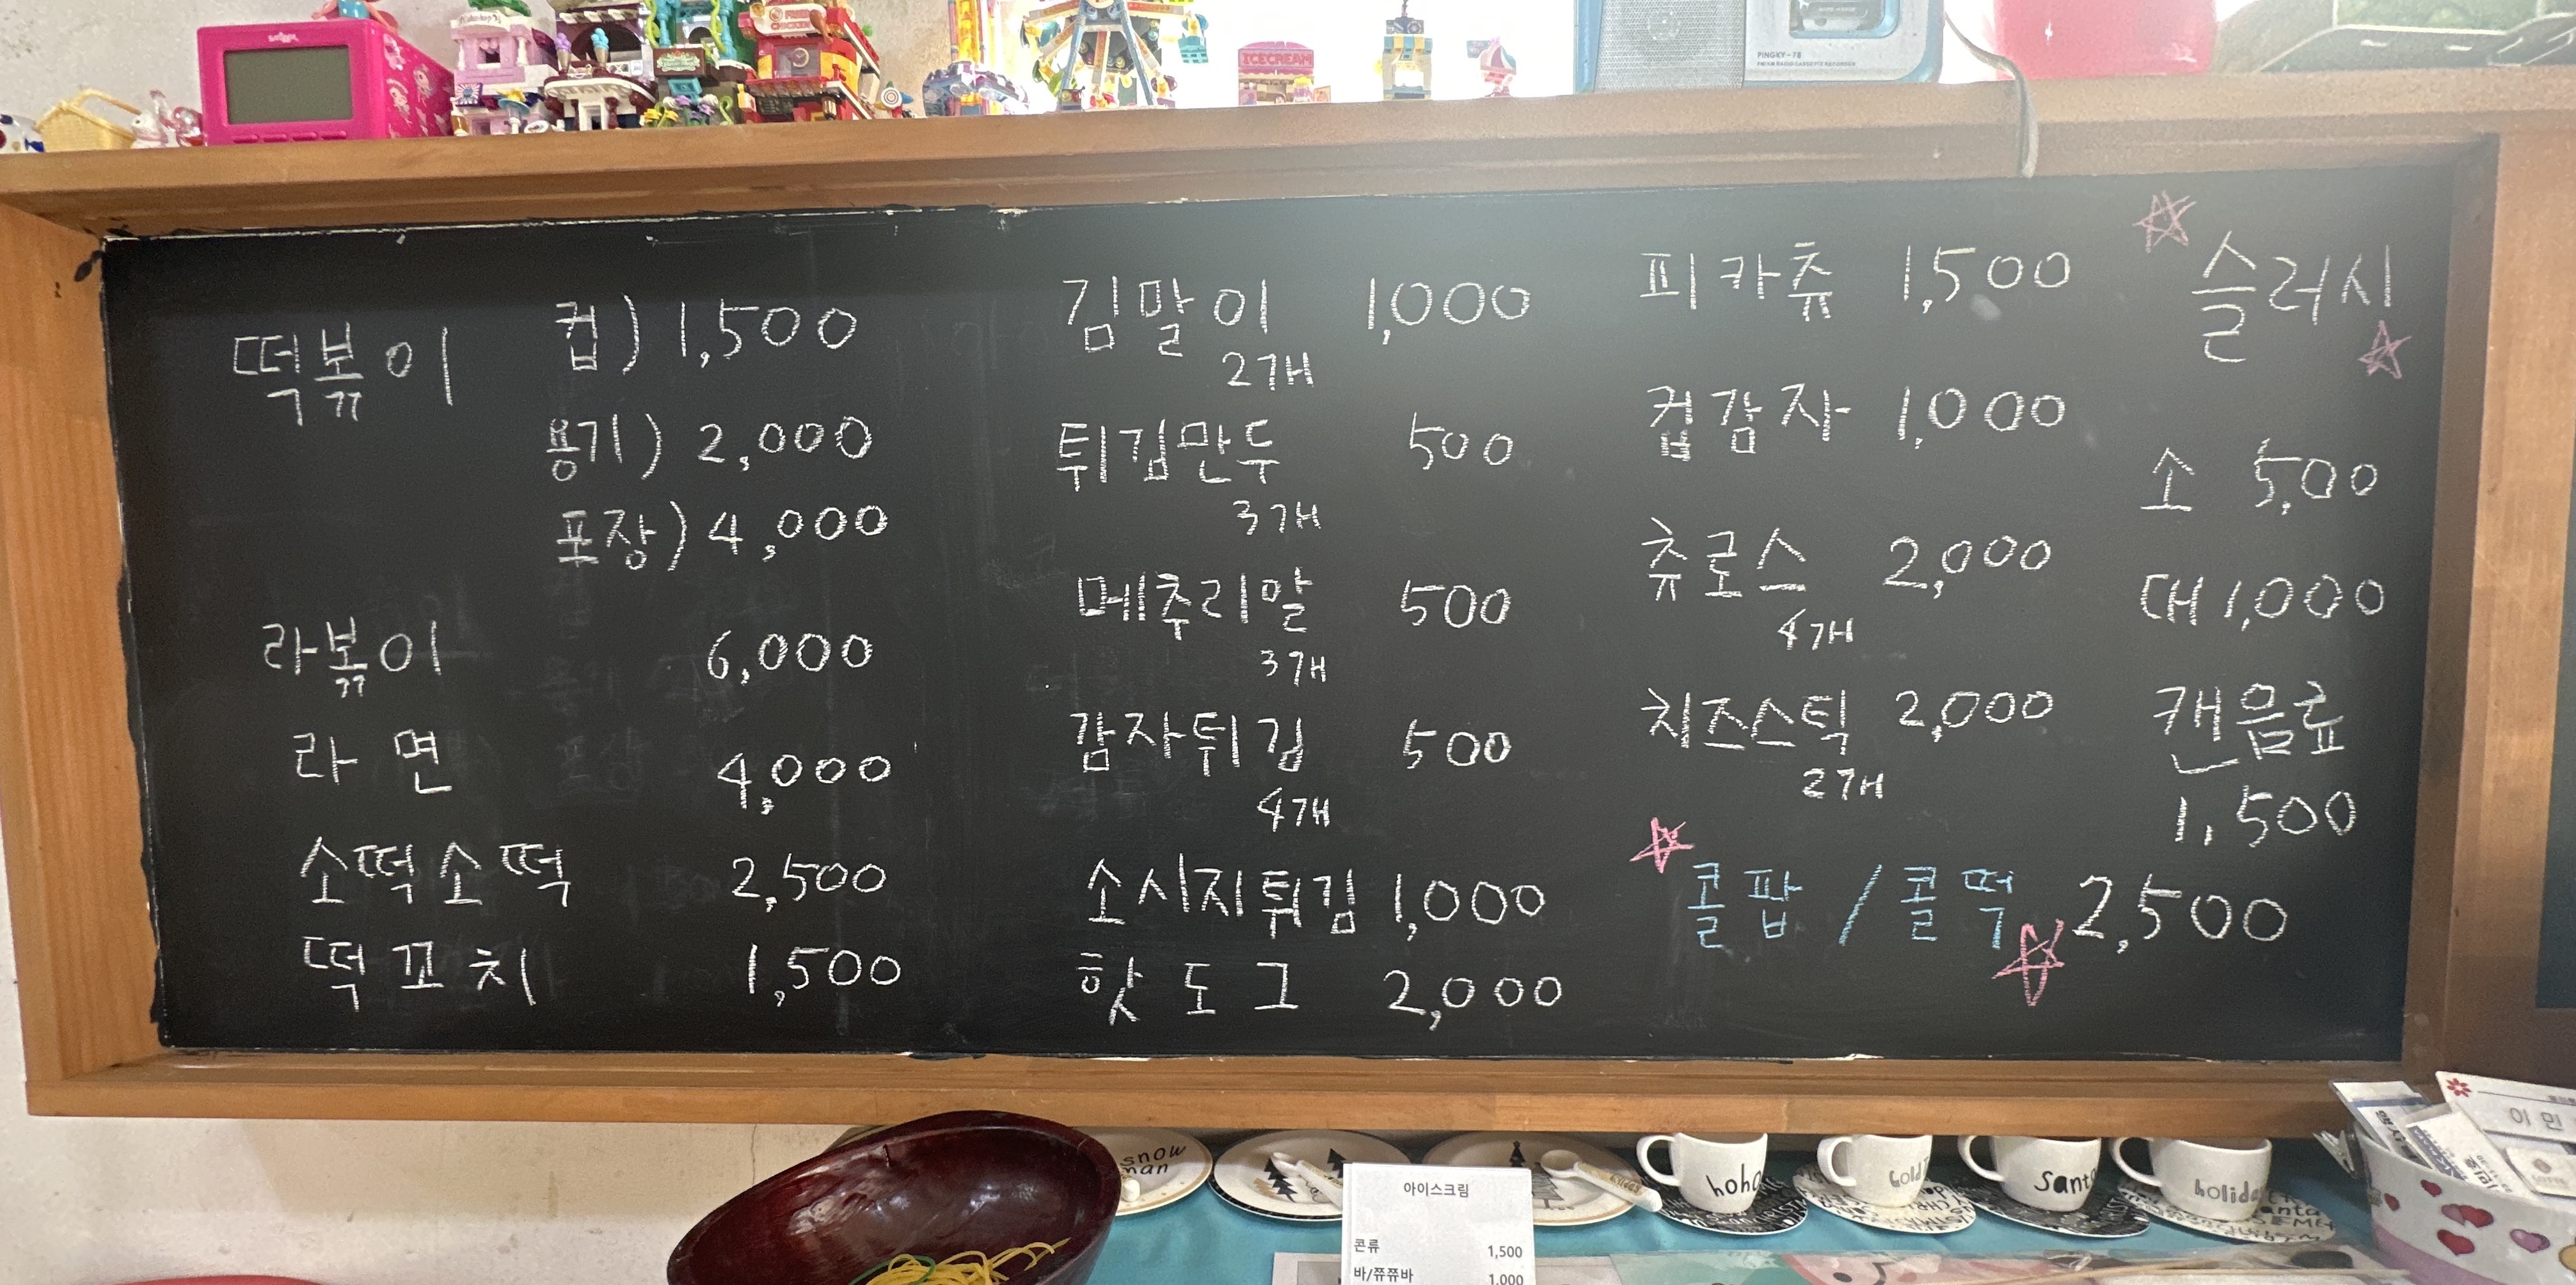 PINGKY-78
ICECREAM
떡볶이 컵) 1,500
용기) 2,000
포장) 4,000
라볶이 6,000
라면 4,000
소떡소떡 2,500
떡꼬치 1,500
김말이 1,000
2개
튀김만두 500
3개
메추리알 500
3개
감자튀김 500
4개
소시지튀김 1,000
핫도그 2,000
피카츄 1,500
컵감자 1,000
츄로스 2,000
4개
치즈스틱 2,000
2개
콜팝 / 콜떡 2,500
슬러시
소 5,00
대 1,000
캔음료
1,500
snow
man
hoho
Gold
Santa
holida
아이스크림
콘류 1,500
바/쮸쮸바 1,000
이민